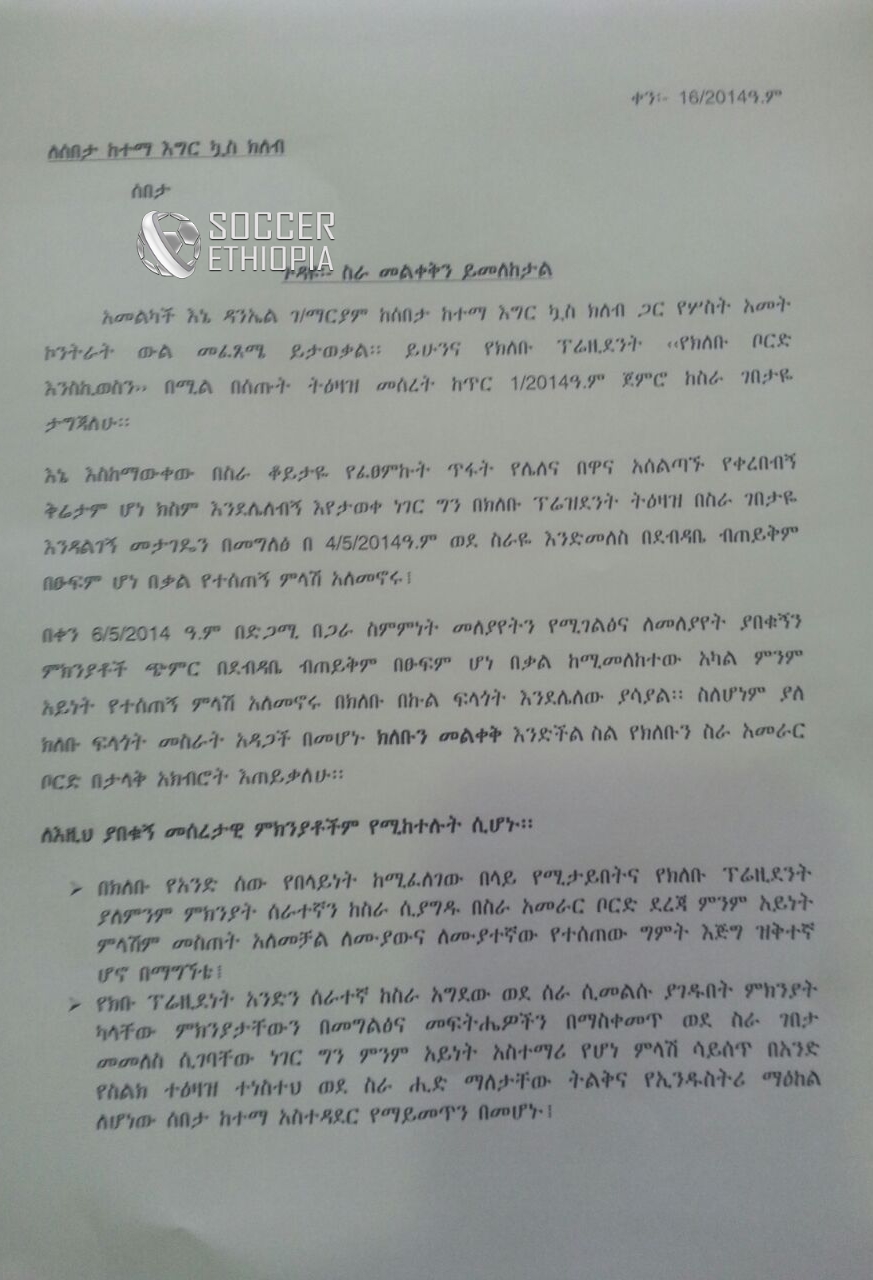 ቀን፡- 16/2014ዓ.ም
ለሰበታ ከተማ እግር ኳስ ክለብ
ሰበታ
SOCCER
ETHIOPIA
ጉዳዩ፡- ስራ መልቀቅን ይመለከታል
አመልካች እኔ ዳንኤል ገ/ማርያም ከሰበታ ከተማ እግር ኳስ ክለብ ጋር የሦስት አመት
ኮንትራት ውል መፈጸሜ ይታወቃል። ይሁንና የክለቡ ፕሬዚደንት ‹‹የክለቡ ቦርድ
እንስኪወስን›› በሚል በሰጡት ትዕዛዝ መሰረት ከጥር 1/2014ዓ.ም ጀምሮ ከስራ ገበታዬ
ታግጃለሁ።
እኔ እስከማውቀው በስራ ቆይታዬ የፈፀምኩት ጥፋት የሌለና በዋና አሰልጣኙ የቀረበብኝ
ቅሬታም ሆነ ክስም እንደሌለብኝ እየታወቀ ነገር ግን በክለቡ ፕሬዝደንት ትዕዛዝ በስራ ገበታዬ
እንዳልገኝ መታገዴን በመግለፅ በ 4/5/2014ዓ.ም ወደ ስራዬ እንድመለስ በደብዳቤ ብጠይቅም
በፁፍም ሆነ በቃል የተሰጠኝ ምላሽ አለመኖሩ፤
በቀን 6/5/2014 ዓ.ም በድጋሚ በጋራ ስምምነት መለያየትን የሚገልፅና ለመለያየት ያበቁኝን
ምክንያቶች ጭምር በደብዳቤ ብጠይቅም በፁፍም ሆነ በቃል ከሚመለከተው አካል ምንም
አይነት የተሰጠኝ ምላሽ አለመኖሩ በክለቡ በኩል ፍላጎት እንደሌለው ያሳያል። ስለሆነም ያለ
ክለቡ ፍላጎት መስራት አዳጋች በመሆኑ ክለቡን መልቀቅ እንድችል ስል የክለቡን ስራ አመራር
ቦርድ በታላቅ አክብሮት እጠይቃለሁ።
ለእዚህ ያበቁኝ መሰረታዊ ምክንያቶችም የሚከተሉት ሲሆኑ።
➢ በክለቡ የአንድ ሰው የበላይነት ከሚፈለገው በላይ የሚታይበትና የክለቡ ፕሬዚደንት
ያለምንም ምክንያት ሰራተኛን ከስራ ሲያግዱ በስራ አመራር ቦርድ ደረጃ ምንም አይነት
ምላሽም መስጠት አለመቻል ለሙያውና ለሙያተኛው የተሰጠው ግምት እጅግ ዝቅተኛ
ሆኖ በማግኘቴ፤
➢ የክቡ ፕሬዚደነት አንድን ሰራተኛ ከስራ አግደው ወደ ሰራ ሲመልሱ ያገዱበት ምክንያት
ካላቸው ምክንያታቸውን በመግልፅና መፍትሔዎችን በማስቀመጥ ወደ ስራ ገበታ
መመለስ ሲገባቸው ነገር ግን ምንም አይነት አስተማሪ የሆነ ምላሽ ሳይሰጥ በአንድ
የስልክ ተዕዛዝ ተነስተህ ወደ ስራ ሒድ ማለታቸው ትልቅና የኢንዱስትሪ ማዕከል
ለሆነው ሰበታ ከተማ አስተዳደር የማይመጥን በመሆኑ፤